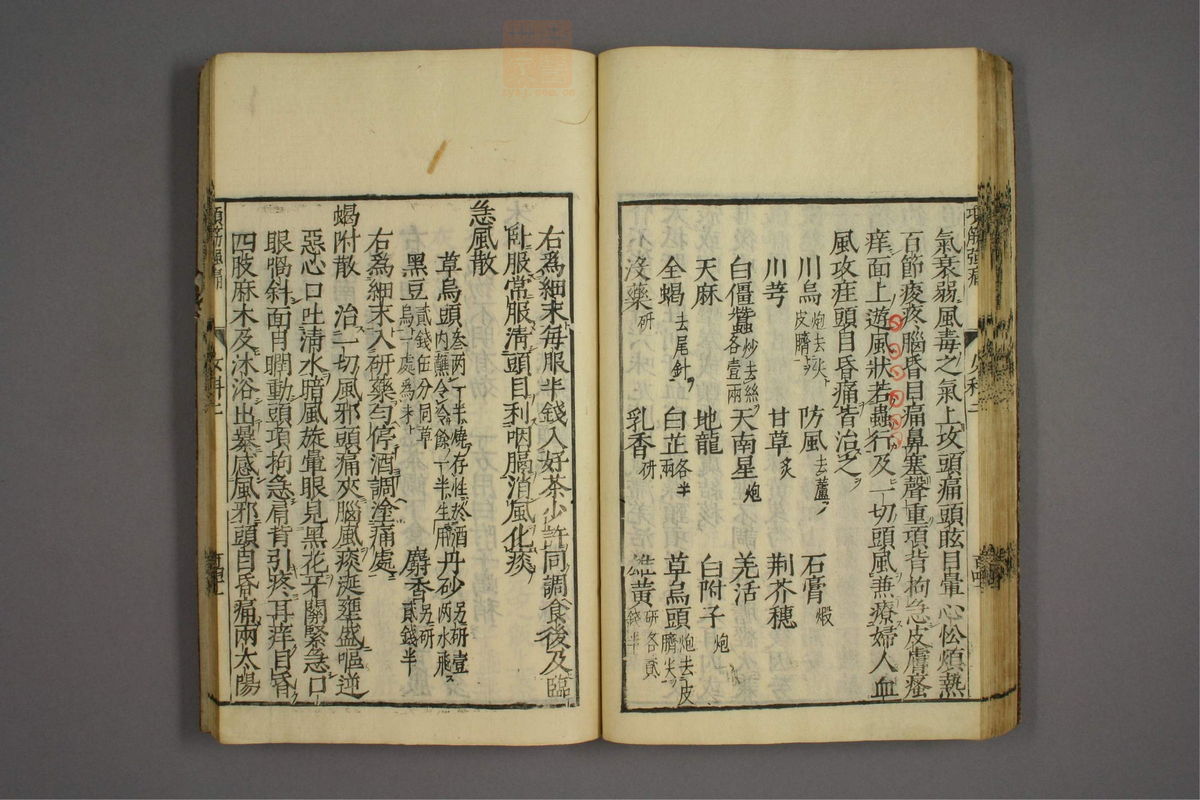 氣衰弱風毒之氣上攻頭痛頭眩目暈心忪煩熱
百節痠疼腦昏目痛鼻塞聲重項背拘急皮膚瘙
痒面上遊風狀若蟲行及一切頭風兼療婦人血
風攻疰頭目昏痛皆治之
川烏炮去皮臍 防風去蘆 石膏煅
川芎 甘草炙 荆芥穗
白僵蠶炒去絲各壹兩 天南星炮 羌活
天麻 地龍 白附子炮
全蝎去尾針 白芷各半兩 草烏頭炮去皮臍尖
沒藥研 乳香研 雄黃研各貳錢半
右為細末每服半錢入好茶少許同調食後及臨
臥服常服清頭目利咽膈消風化痰
急風散
草烏頭叁兩一半燒存性於酒內蘸令冷餘一半生用 丹砂另研壹兩水飛
黑豆貳錢伍分同草烏一處為末 麝香另研貳錢半
右為細末入研藥勻停酒調塗痛處
蝎附散 治一切風邪頭痛夾腦風痰涎壅盛嘔逆
惡心口吐清水暗風旋暈眼見黑花牙關緊急口
眼喎斜面目瞤動頭項拘急肩背引疼耳痒目昏
四肢麻木及沐浴出暴感風邪頭目昏痛兩太陽